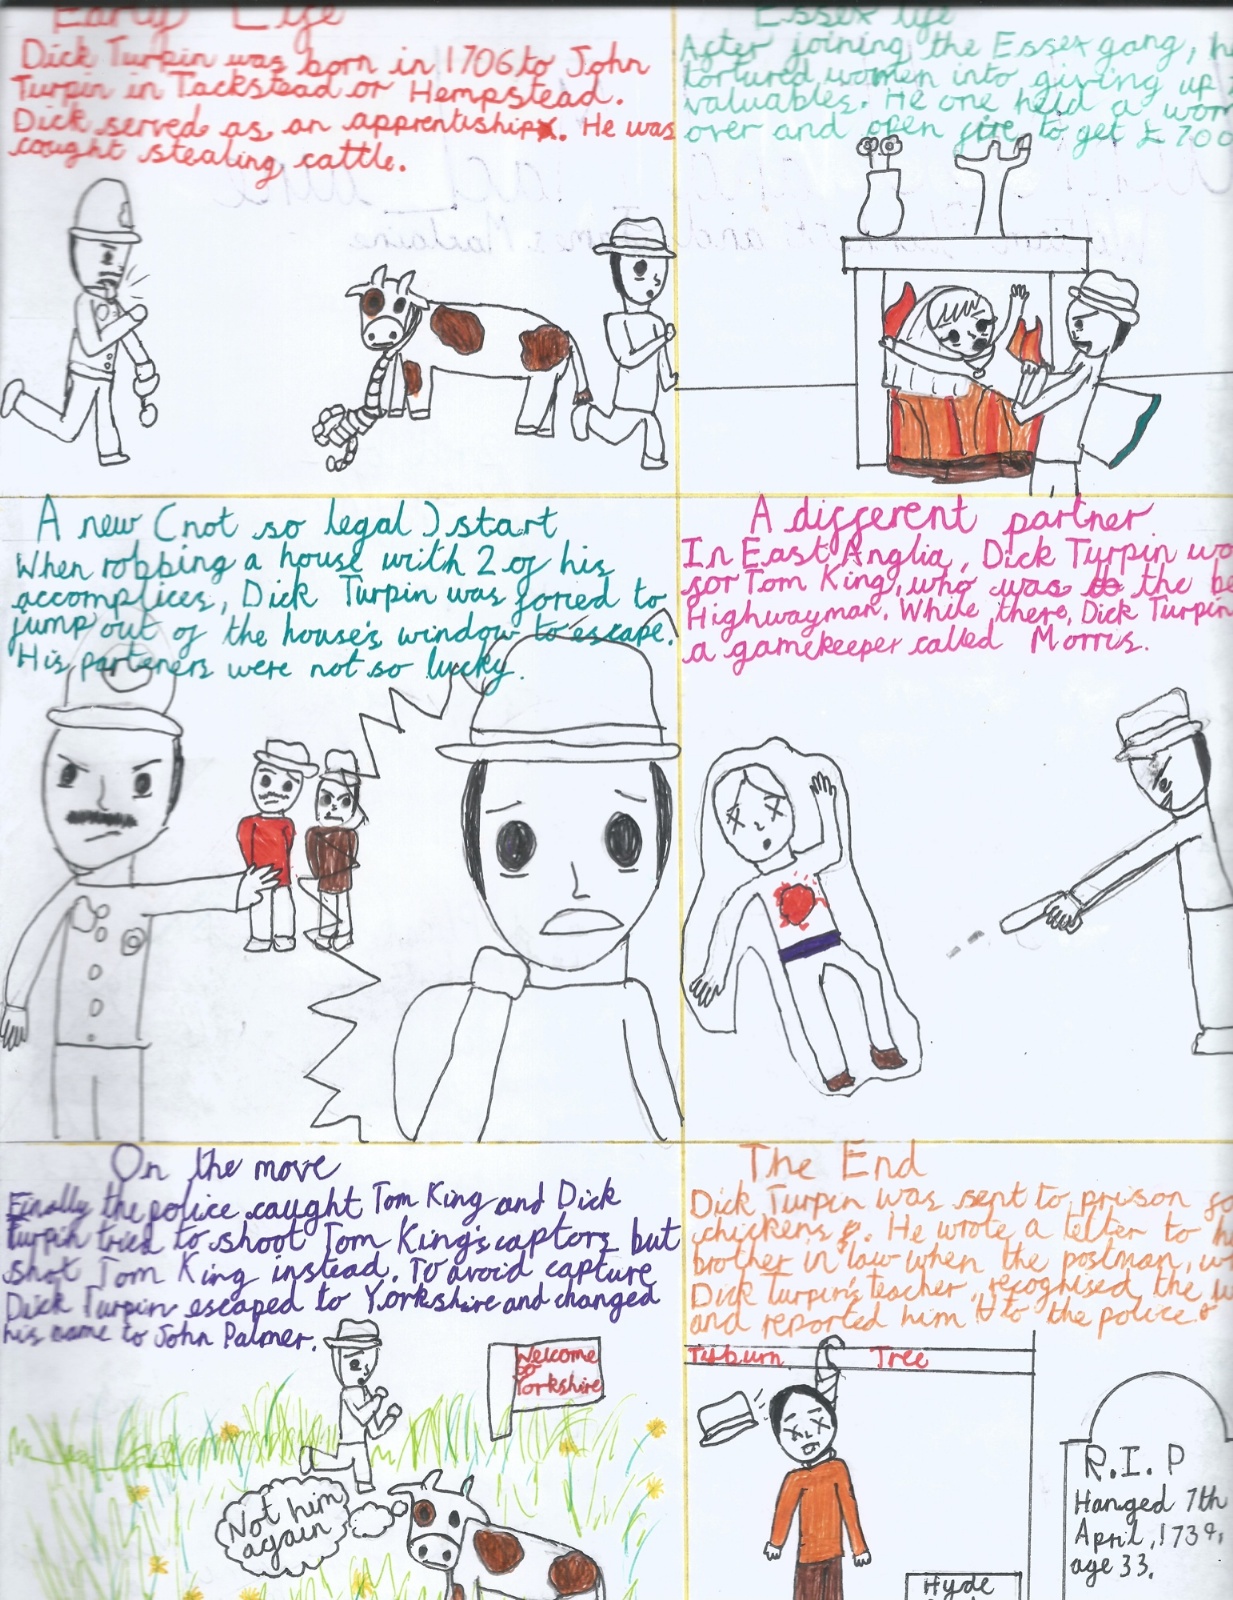 Early Life
Dick Turpin was born in 1706 to John
Turpin in Tackstead or Hempstead.
Dick served as an apprentiship. He was
cought stealing cattle.
Essex life
After joining the Essex gang, h
tortured women into giving up
valuables. He one held a wom
over and open fire to get £700
A new (not so legal) start
When robbing a house with 2 of his
accomplices, Dick Turpin was foried to
jump out of the house's window to escape.
His parteners were not so lucky.
A different partner
In East Anglia, Dick Turpin wo
for Tom King, who was the be
Highwayman. While there, Dick Turpin
a gamekeeper called Morris.
On the move
Finally the police caught Tom King and Dick
Turpin tried to shoot Tom King's captors but
shot Tom King instead. To avoid capture
Dick Turpin escaped to Yorkshire and changed
his name to John Palmer.
Welcome
to
Yorkshire
Not him
again
The End
Dick Turpin was sent to prison fo
chickens. He wrote a letter to h
brother in law when the postman, w
Dick Turpin's teacher, recognised the w
and reported him to the police.
Tyburn Tree
R.I.P
Hanged 7th
April, 1739,
age 33.
Hyde